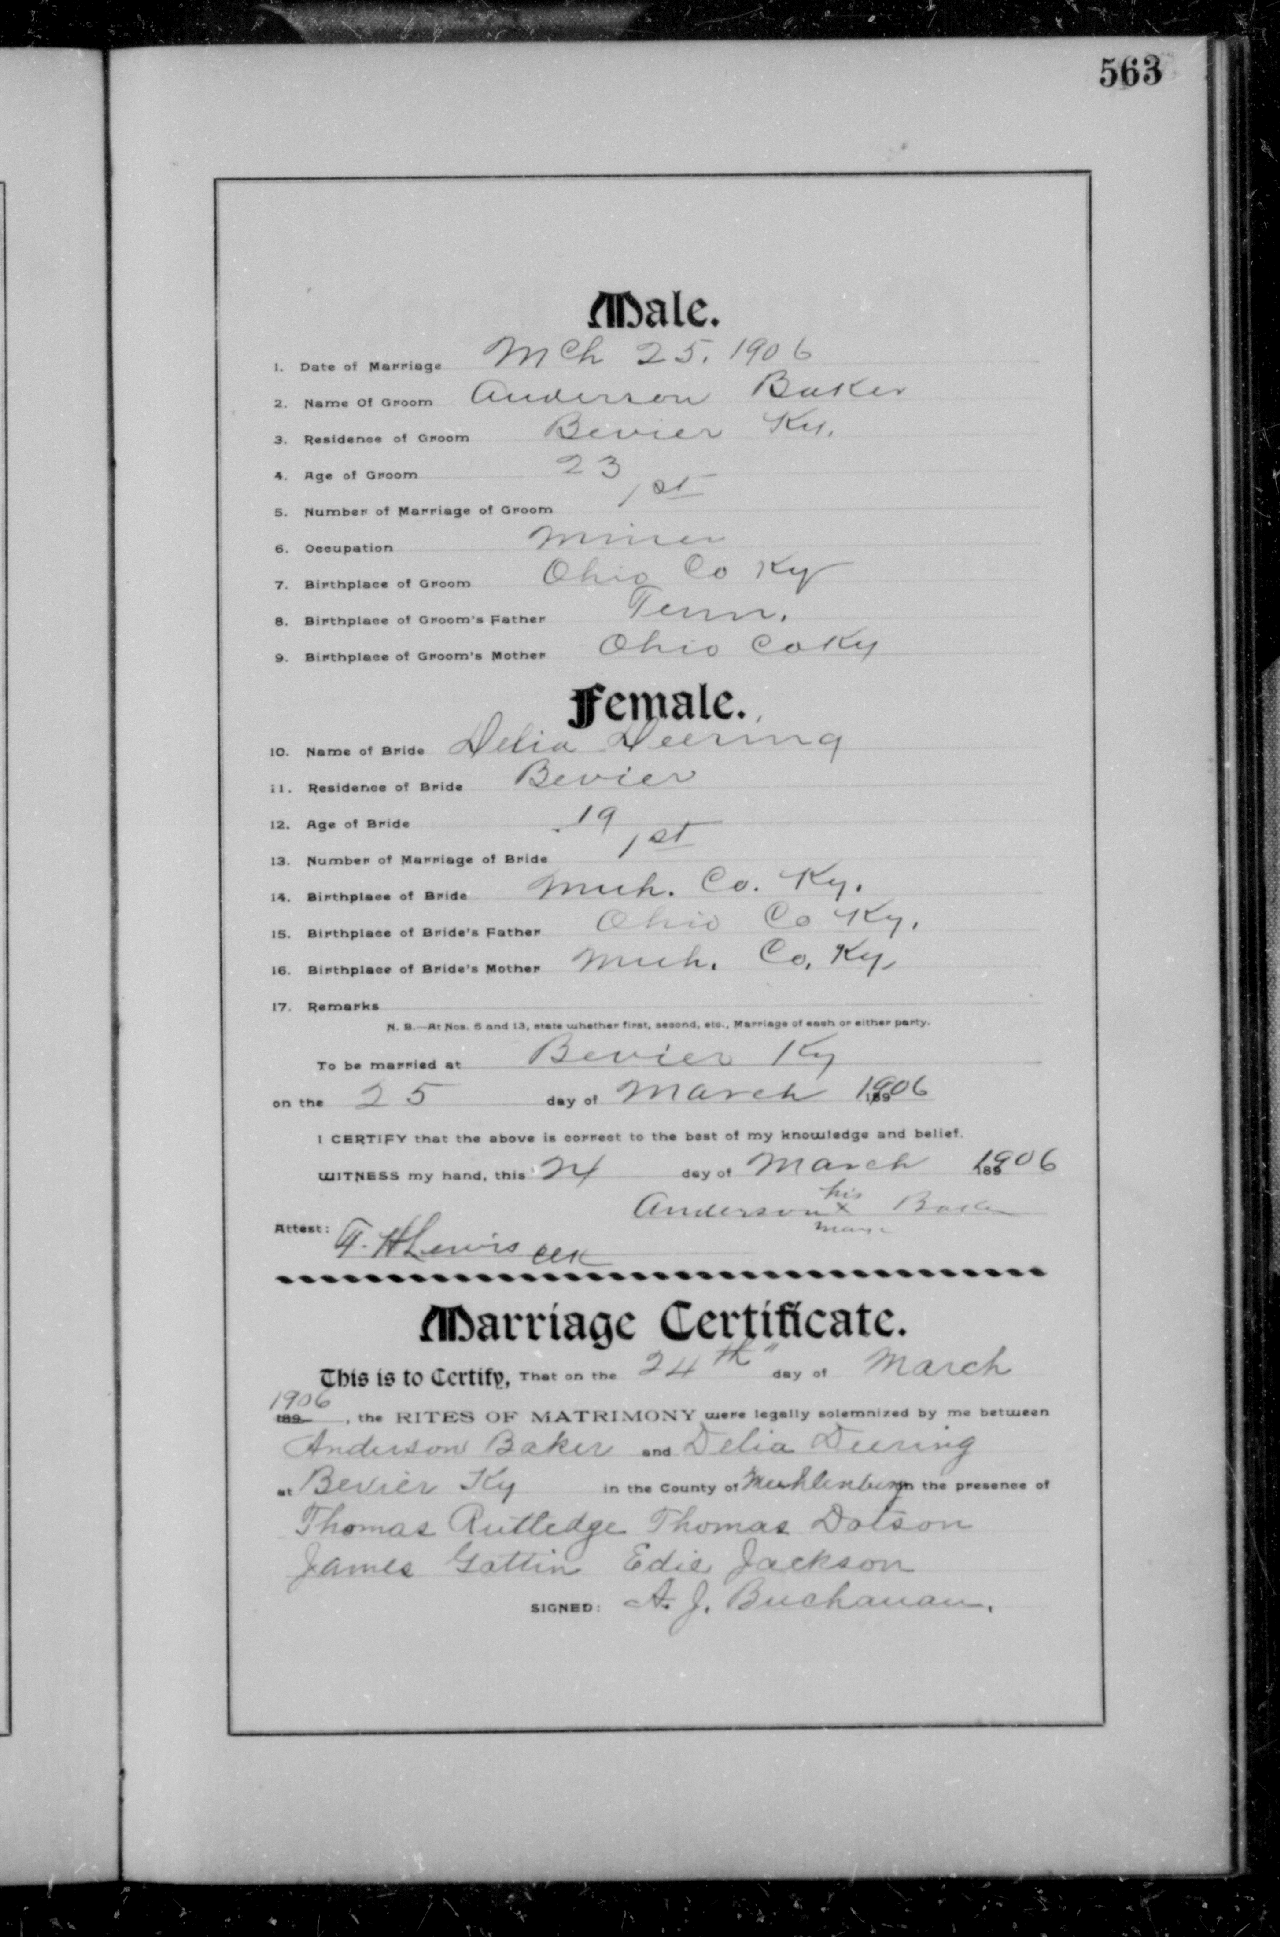 563
Male.
1. Date of Marriage Mch 25, 1906
2. Name Of Groom Anderson Baker
3. Residence of Groom Bevier Ky.
4. Age of Groom 23
5. Number of Marriage of Groom 1st
6. Occupation Miner
7. Birthplace of Groom Ohio Co Ky
8. Birthplace of Groom's Father Tenn.
9. Birthplace of Groom's Mother Ohio Co Ky
Female.
10. Name of Bride Delia Deering
11. Residence of Bride Bevier
12. Age of Bride 19
13. Number of Marriage of Bride 1st
14. Birthplace of Bride Muh. Co. Ky.
15. Birthplace of Bride's Father Ohio Co Ky.
16. Birthplace of Bride's Mother Muh. Co. Ky
17. Remarks
N. B.—At Nos. 5 and 13, state whether first, second, etc., Marriage of each or either party.
To be married at Bevier Ky
on the 25 day of March 1906
I CERTIFY that the above is correct to the best of my knowledge and belief.
WITNESS my hand, this 24 day of March 1906
Anderson his x mark Baker
Attest: T. H Lewis Clk
Marriage Certificate.
This is to Certify, That on the 24th" day of March
1906, the RITES OF MATRIMONY were legally solemnized by me between
Anderson Baker and Delia Deering
at Bevier Ky in the County of Muhlenberg in the presence of
Thomas Rutledge Thomas Dotson
James Gattin Edie Jackson
SIGNED: A. J. Buchanan.